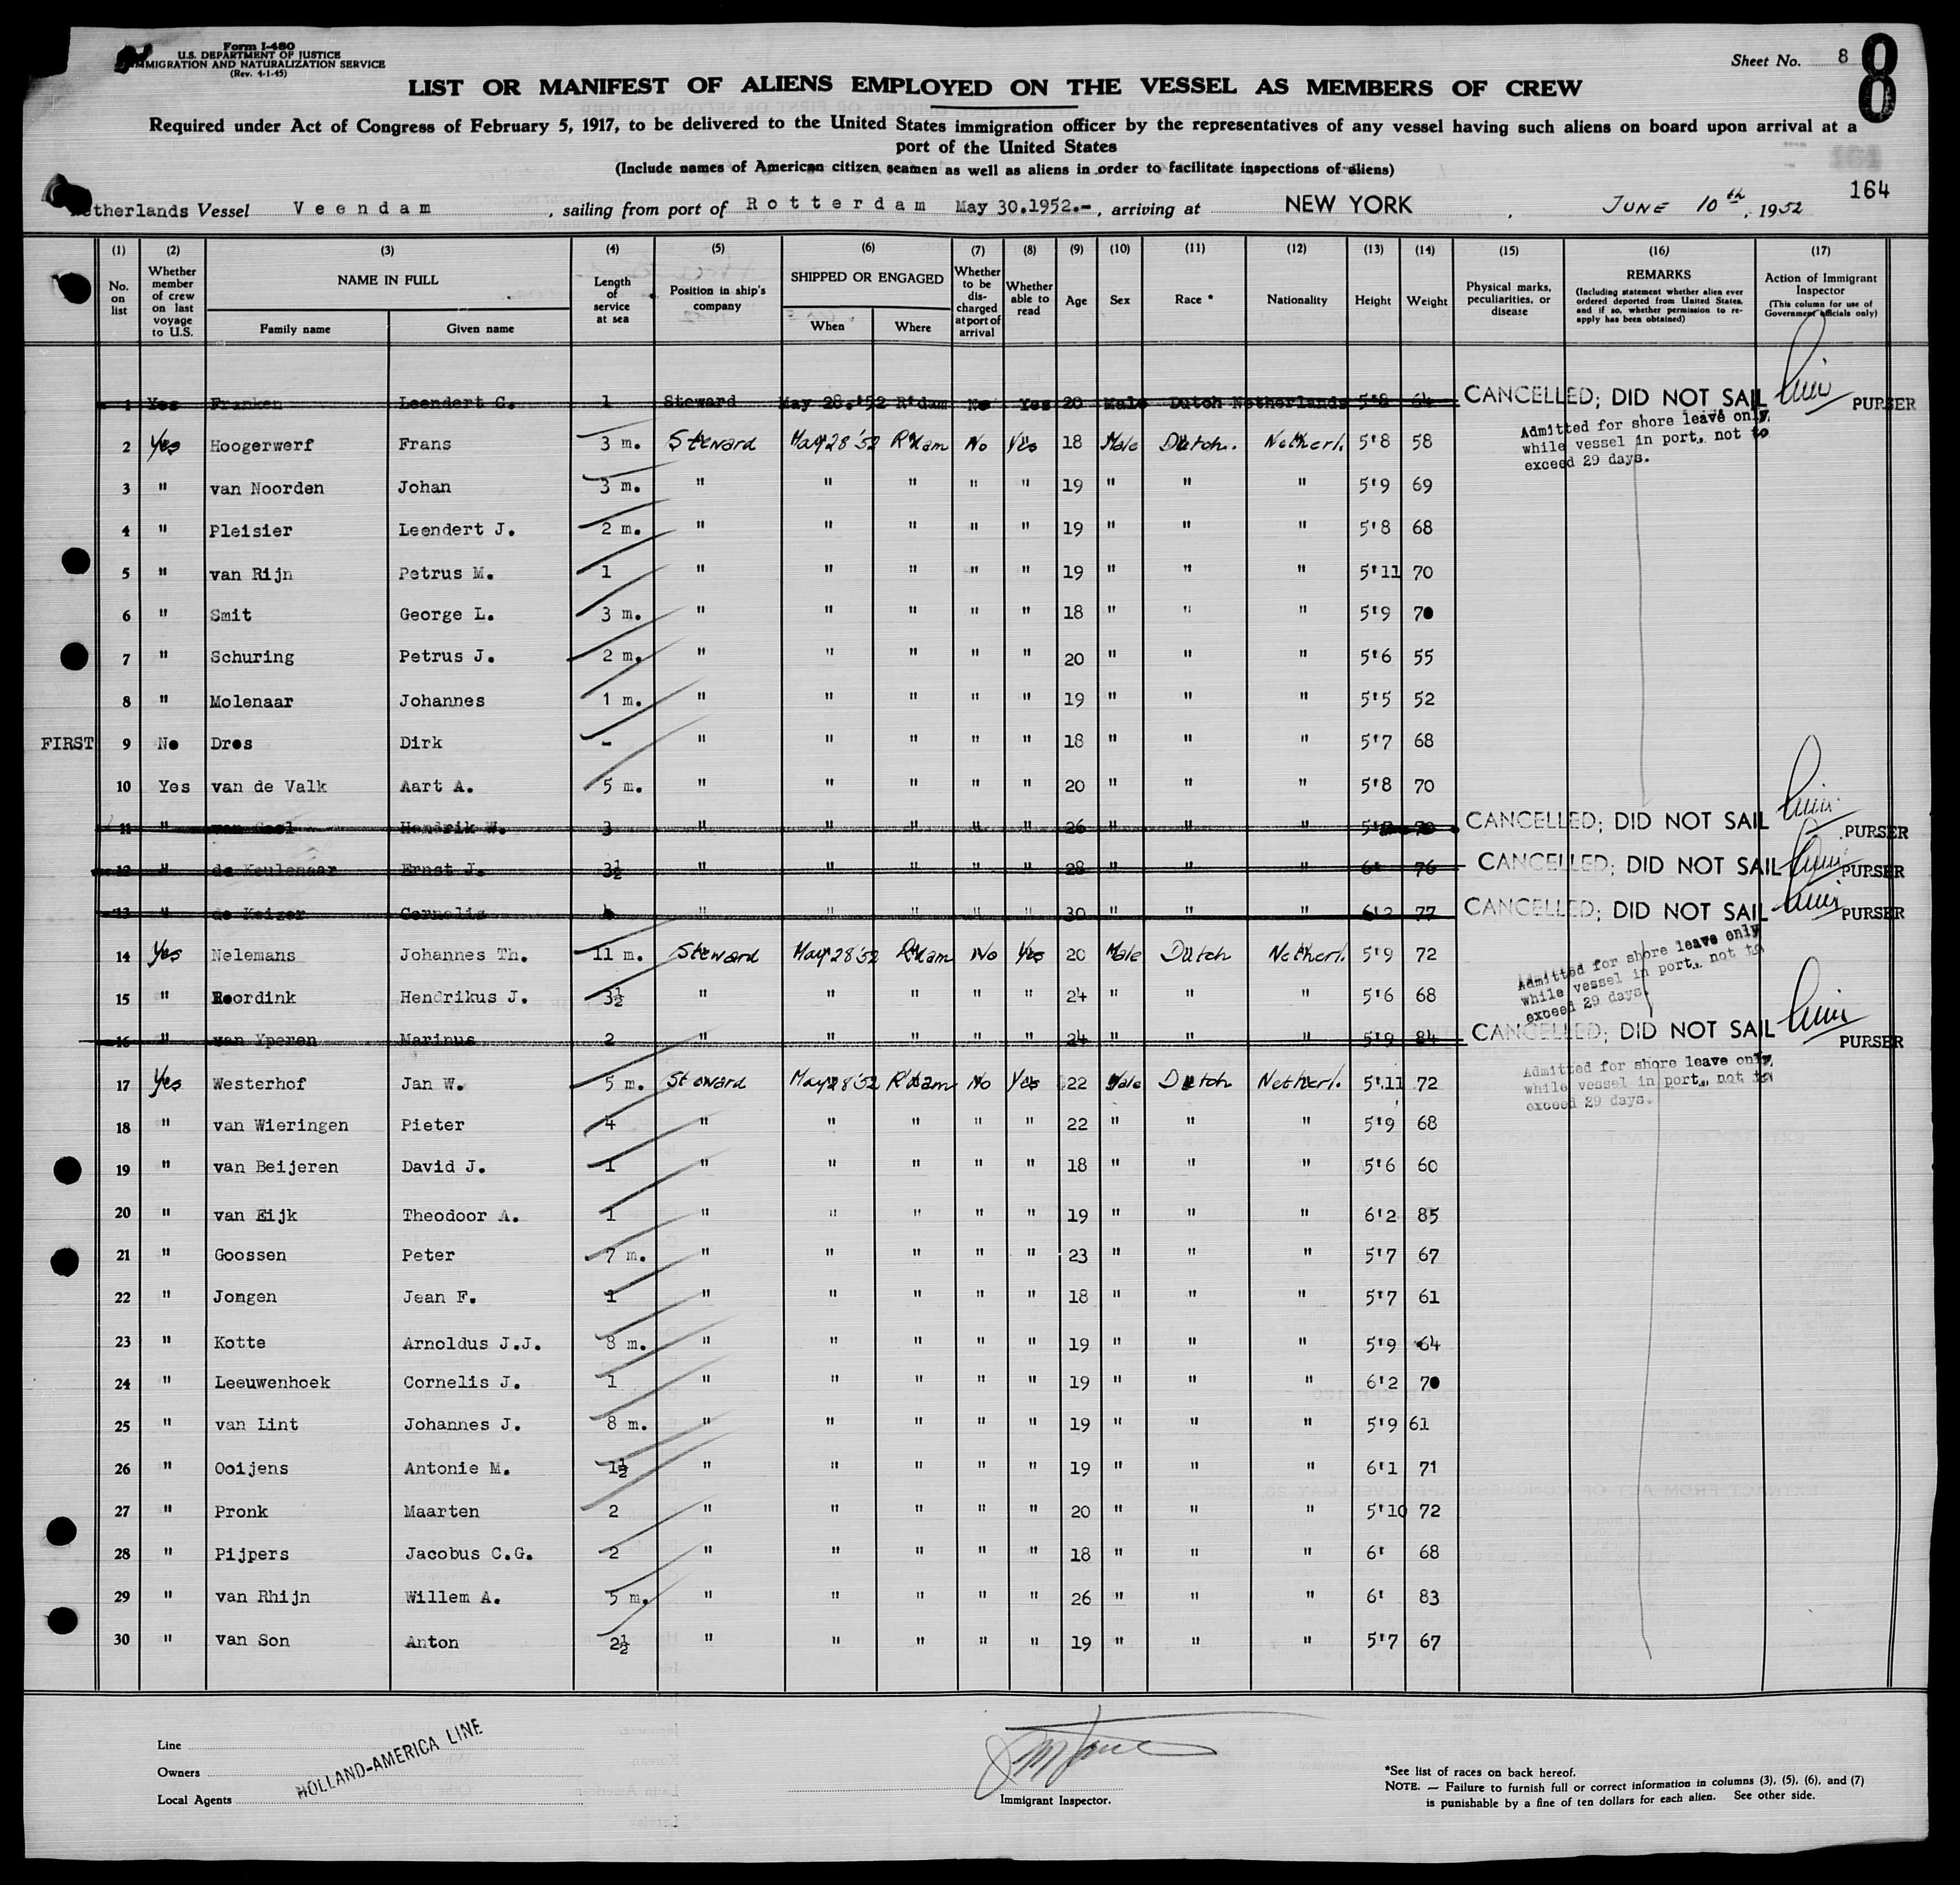 Form I-480
U.S. DEPARTMENT OF JUSTICE
IMMIGRATION AND NATURALIZATION SERVICE
(Rev. 4-1-45)
Sheet No. 8
8
LIST OR MANIFEST OF ALIENS EMPLOYED ON THE VESSEL AS MEMBERS OF CREW
Required under Act of Congress of February 5, 1917, to be delivered to the United States immigration officer by the representatives of any vessel having such aliens on board upon arrival at a
port of the United States
(Include names of American citizen seamen as well as aliens in order to facilitate inspections of aliens)
164
Netherlands Vessel Veendam, sailing from port of Rotterdam May 30.1952.-, arriving at NEW YORK, JUNE 10th, 1952
(1) (2) (3) (4) (5) (6) (7) (8) (9) (10) (11) (12) (13) (14) (15) (16) (17)
No. on list
Whether member of crew on last voyage to U.S.
NAME IN FULL
Family name
Given name
Length of service at sea
Position in ship's company
SHIPPED OR ENGAGED
When
Where
Whether to be discharged at port of arrival
Whether able to read
Age
Sex
Race *
Nationality
Height
Weight
Physical marks, peculiarities, or disease
REMARKS
(Including statement whether alien ever ordered deported from United States, and if so, whether permission to re-apply has been obtained)
Action of Immigrant Inspector
(This column for use of Government officials only)
1 Yes Franken Leendert C. 1 Steward May 28.'52 R'dam No Yes 20 Male Dutch Netherlands 5'8 64 CANCELLED; DID NOT SAIL PURSER
Admitted for shore leave only,
while vessel in port, not to
exceed 29 days.
2 Yes Hoogerwerf Frans 3 m. Steward May 28 '52 R'dam No Yes 18 Male Dutch. Netherl. 5'8 58
3 " van Noorden Johan 3 m. " " " " " 19 " " " 5'9 69
4 " Pleisier Leendert J. 2 m. " " " " " 19 " " " 5'8 68
5 " van Rijn Petrus M. 1 " " " " " 19 " " " 5'11 70
6 " Smit George L. 3 m. " " " " " 18 " " " 5'9 70
7 " Schuring Petrus J. 2 m. " " " " " 20 " " " 5'6 55
8 " Molenaar Johannes 1 m. " " " " " 19 " " " 5'5 52
FIRST 9 No Dros Dirk - " " " " " 18 " " " 5'7 68
10 Yes van de Valk Aart A. 5 m. " " " " " 20 " " " 5'8 70
11 " van Hendrik W. 3 " " " " " 26 " " " CANCELLED; DID NOT SAIL PURSER
12 " de Keulenaar Ernst J. 3½ " " " " " 28 " " " 6' 76 CANCELLED; DID NOT SAIL PURSER
13 " de Keizer Cornelis " " " " " 30 " " " 6'2 77 CANCELLED; DID NOT SAIL PURSER
14 Yes Nelemans Johannes Th. 11 m. Steward May 28 '52 R'dam No Yes 20 Male Dutch Netherl. 5'9 72
Admitted for shore leave only
while vessel in port, not to
exceed 29 days.
15 " Roordink Hendrikus J. 3½ " " " " " 24 " " " 5'6 68
16 " van Yperen Marinus 2 " " " " " 24 " " " 5'9 84 CANCELLED; DID NOT SAIL PURSER
Admitted for shore leave only,
while vessel in port, not to
exceed 29 days.
17 Yes Westerhof Jan W. 5 m. Steward May 28 '52 R'dam No Yes 22 Male Dutch Netherl. 5'11 72
18 " van Wieringen Pieter 4 " " " " " 22 " " " 5'9 68
19 " van Beijeren David J. 1 " " " " " 18 " " " 5'6 60
20 " van Eijk Theodoor A. 1 " " " " " 19 " " " 6'2 85
21 " Goossen Peter 7 m. " " " " " 23 " " " 5'7 67
22 " Jongen Jean F. 1 " " " " " 18 " " " 5'7 61
23 " Kotte Arnoldus J.J. 8 m. " " " " " 19 " " " 5'9 64
24 " Leeuwenhoek Cornelis J. 1 " " " " " 19 " " " 6'2 70
25 " van Lint Johannes J. 8 m. " " " " " 19 " " " 5'9 61
26 " Ooijens Antonie M. 1½ " " " " " 19 " " " 6'1 71
27 " Pronk Maarten 2 " " " " " 20 " " " 5'10 72
28 " Pijpers Jacobus C.G. 2 " " " " " 18 " " " 6' 68
29 " van Rhijn Willem A. 5 m. " " " " " 26 " " " 6' 83
30 " van Son Anton 2½ " " " " " 19 " " " 5'7 67
Line
Owners
Local Agents
HOLLAND-AMERICA LINE
Immigrant Inspector.
*See list of races on back hereof.
NOTE. — Failure to furnish full or correct information in columns (3), (5), (6), and (7)
is punishable by a fine of ten dollars for each alien. See other side.